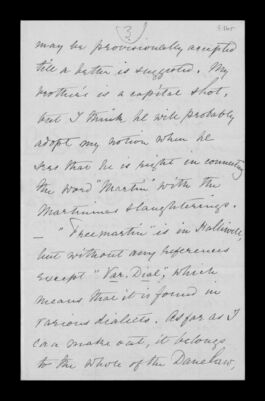 3
may be provisionally accepted
till a better is suggested. My
brother's is a capital shot,
but I think he will probably
adopt my notion when he
sees that he is right in connecting
the word "Martin" with the
Martinmas slaughterings.
— "Freemartin" is in Halliwell,
but without any references
except "Var. Dial;" which
means that it is found in
various dialects. As far as I
can make out, it belongs
to the whole of the Danelaw,